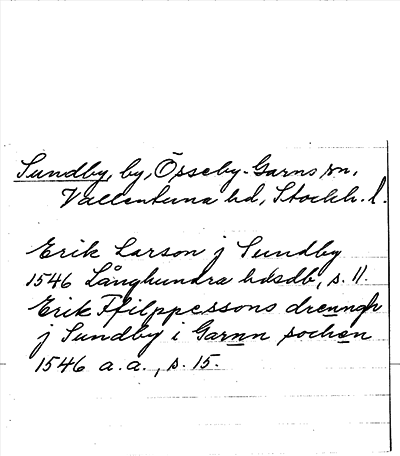 Sundby, by, Össeby-Garns sn,
Vallentuna hd, Stockh. l.
Erik Larson j Sundby
1546 Långhundra hdsdb, s. 11.
Erik Ffilppessons drenngh
j Sundby i Garnn sochen
1546 a.a., s. 15.